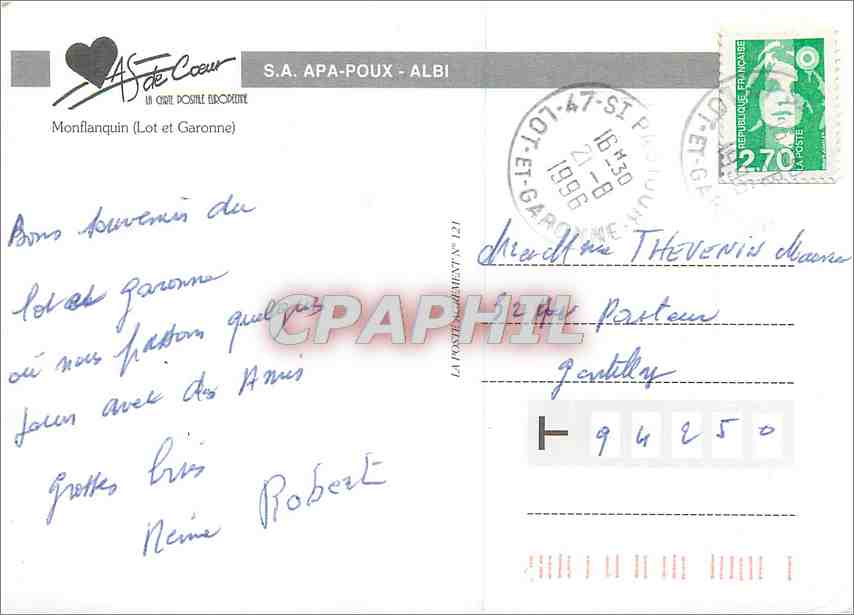 As de Coeur
LA CARTE POSTALE EUROPEENNE
S.A. APA-POUX - ALBI
Monflanquin (Lot et Garonne)
REPUBLIQUE FRANÇAISE
2,70
LA POSTE
47-ST PASTOUR
LOT-ET-GARONNE
16H30
21-8
1996
Bons souvenirs du
lot et garonne
où nous passons quelques
jours avec des Amis
grosses bises
Reine Robert
LA POSTE AGREMENT N° 121
CPAPHIL
THEVENIN
52 Av Pasteur
gentilly
94250